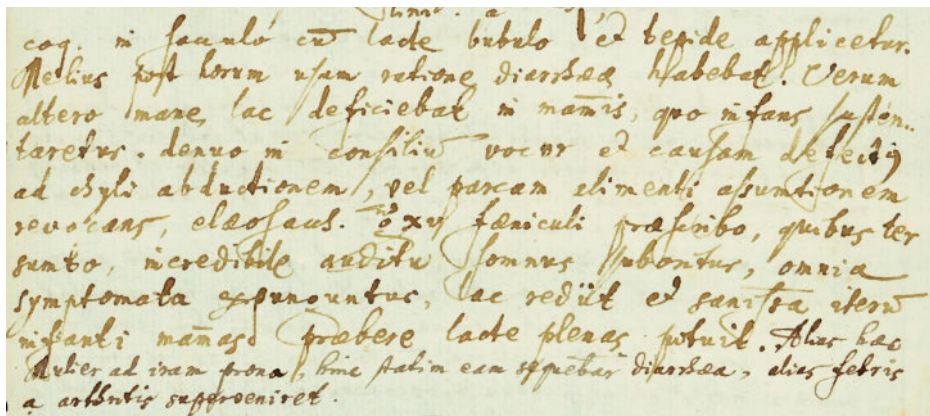 coq. in sacculo cũ lacte bubulo et tepide applicetur.
Melius post horum usum ratione diarrhææ habebat. Verum
altero mane lac deficiebat in mam̄is, quo infans susten-
taretur. denuo in consiliũ vocor et causam defectus
ad chyli abductionem, vel parcam alimenti assumtionem
revocans, elæosacc. xv fæniculi præscribo, quibus ter
sumto, incredibile auditu somnus suboritur, omnia
symptomata expunguntur, lac rediit et sanissa iterũ
infanti mam̄as præbere lacte plenas potuit. Alias hæc
Mulier ad iram prona, hinc statim eam sequebat diarrhæa, alias febris
a arthritis superveniret.